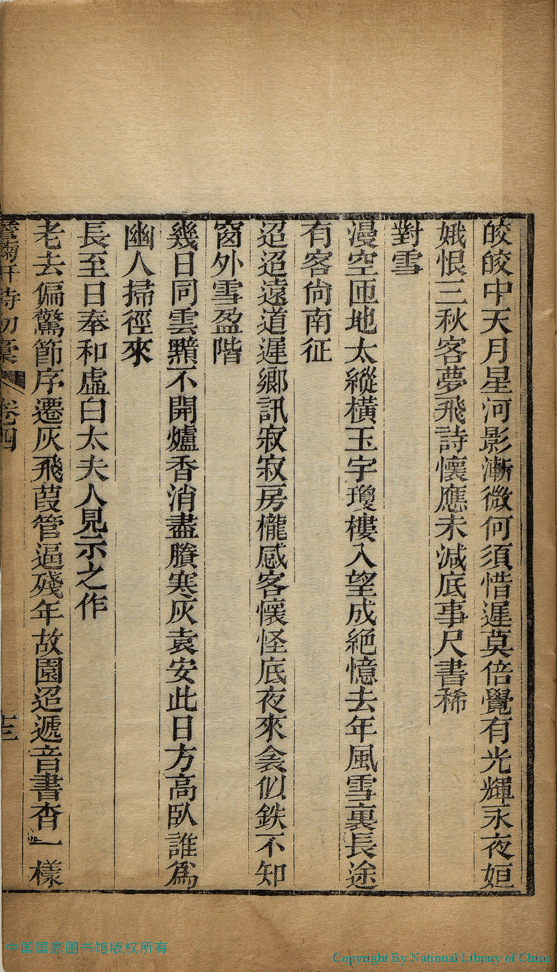 皎皎中天月星河影漸微何須惜遲莫倍覺有光輝永夜姮
娥恨三秋客夢飛詩懷應未減底事尺書稀
對雪
漫空匝地太縱橫玉宇瓊樓入望成絕憶去年風雪裏長途
有客尙南征
迢迢遠道遲鄉訊寂寂房櫳感客懷怪底夜來衾似鉄不知
窗外雪盈階
幾日同雲黯不開爐香消盡賸寒灰袁安此日方高臥誰爲
幽人掃徑來
長至日奉和虛白太夫人見示之作
老去偏驚節序遷灰飛葭管逼殘年故園迢遞音書杳一樣
軒詩初稾 卷四
中国国家图书馆版权所有
Copyright By National Library of China